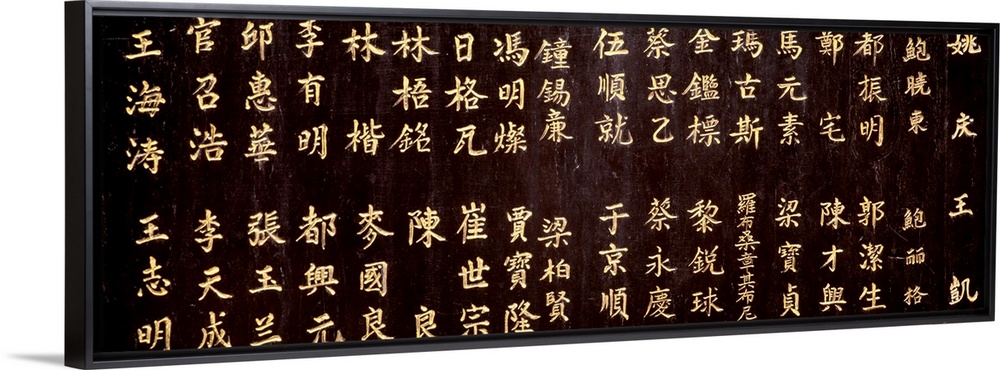 姚庆 王凱
鮑曉東 鮑丽格
都振明 郭潔生
鄭宅 陳才興
馬元素 梁寶貞
瑪古斯 羅布桑章其布尼
金鑑標 黎銳球
蔡思乙 蔡永慶
伍順就 于京順
鐘錫亷 梁柏賢
馮明燦 賈寶隆
日格瓦 崔世宗
林梧銘 陳良
林楷 麥國良
李有明 都興元
邱惠華 張玉兰
官召浩 李天成
王海涛 王志明